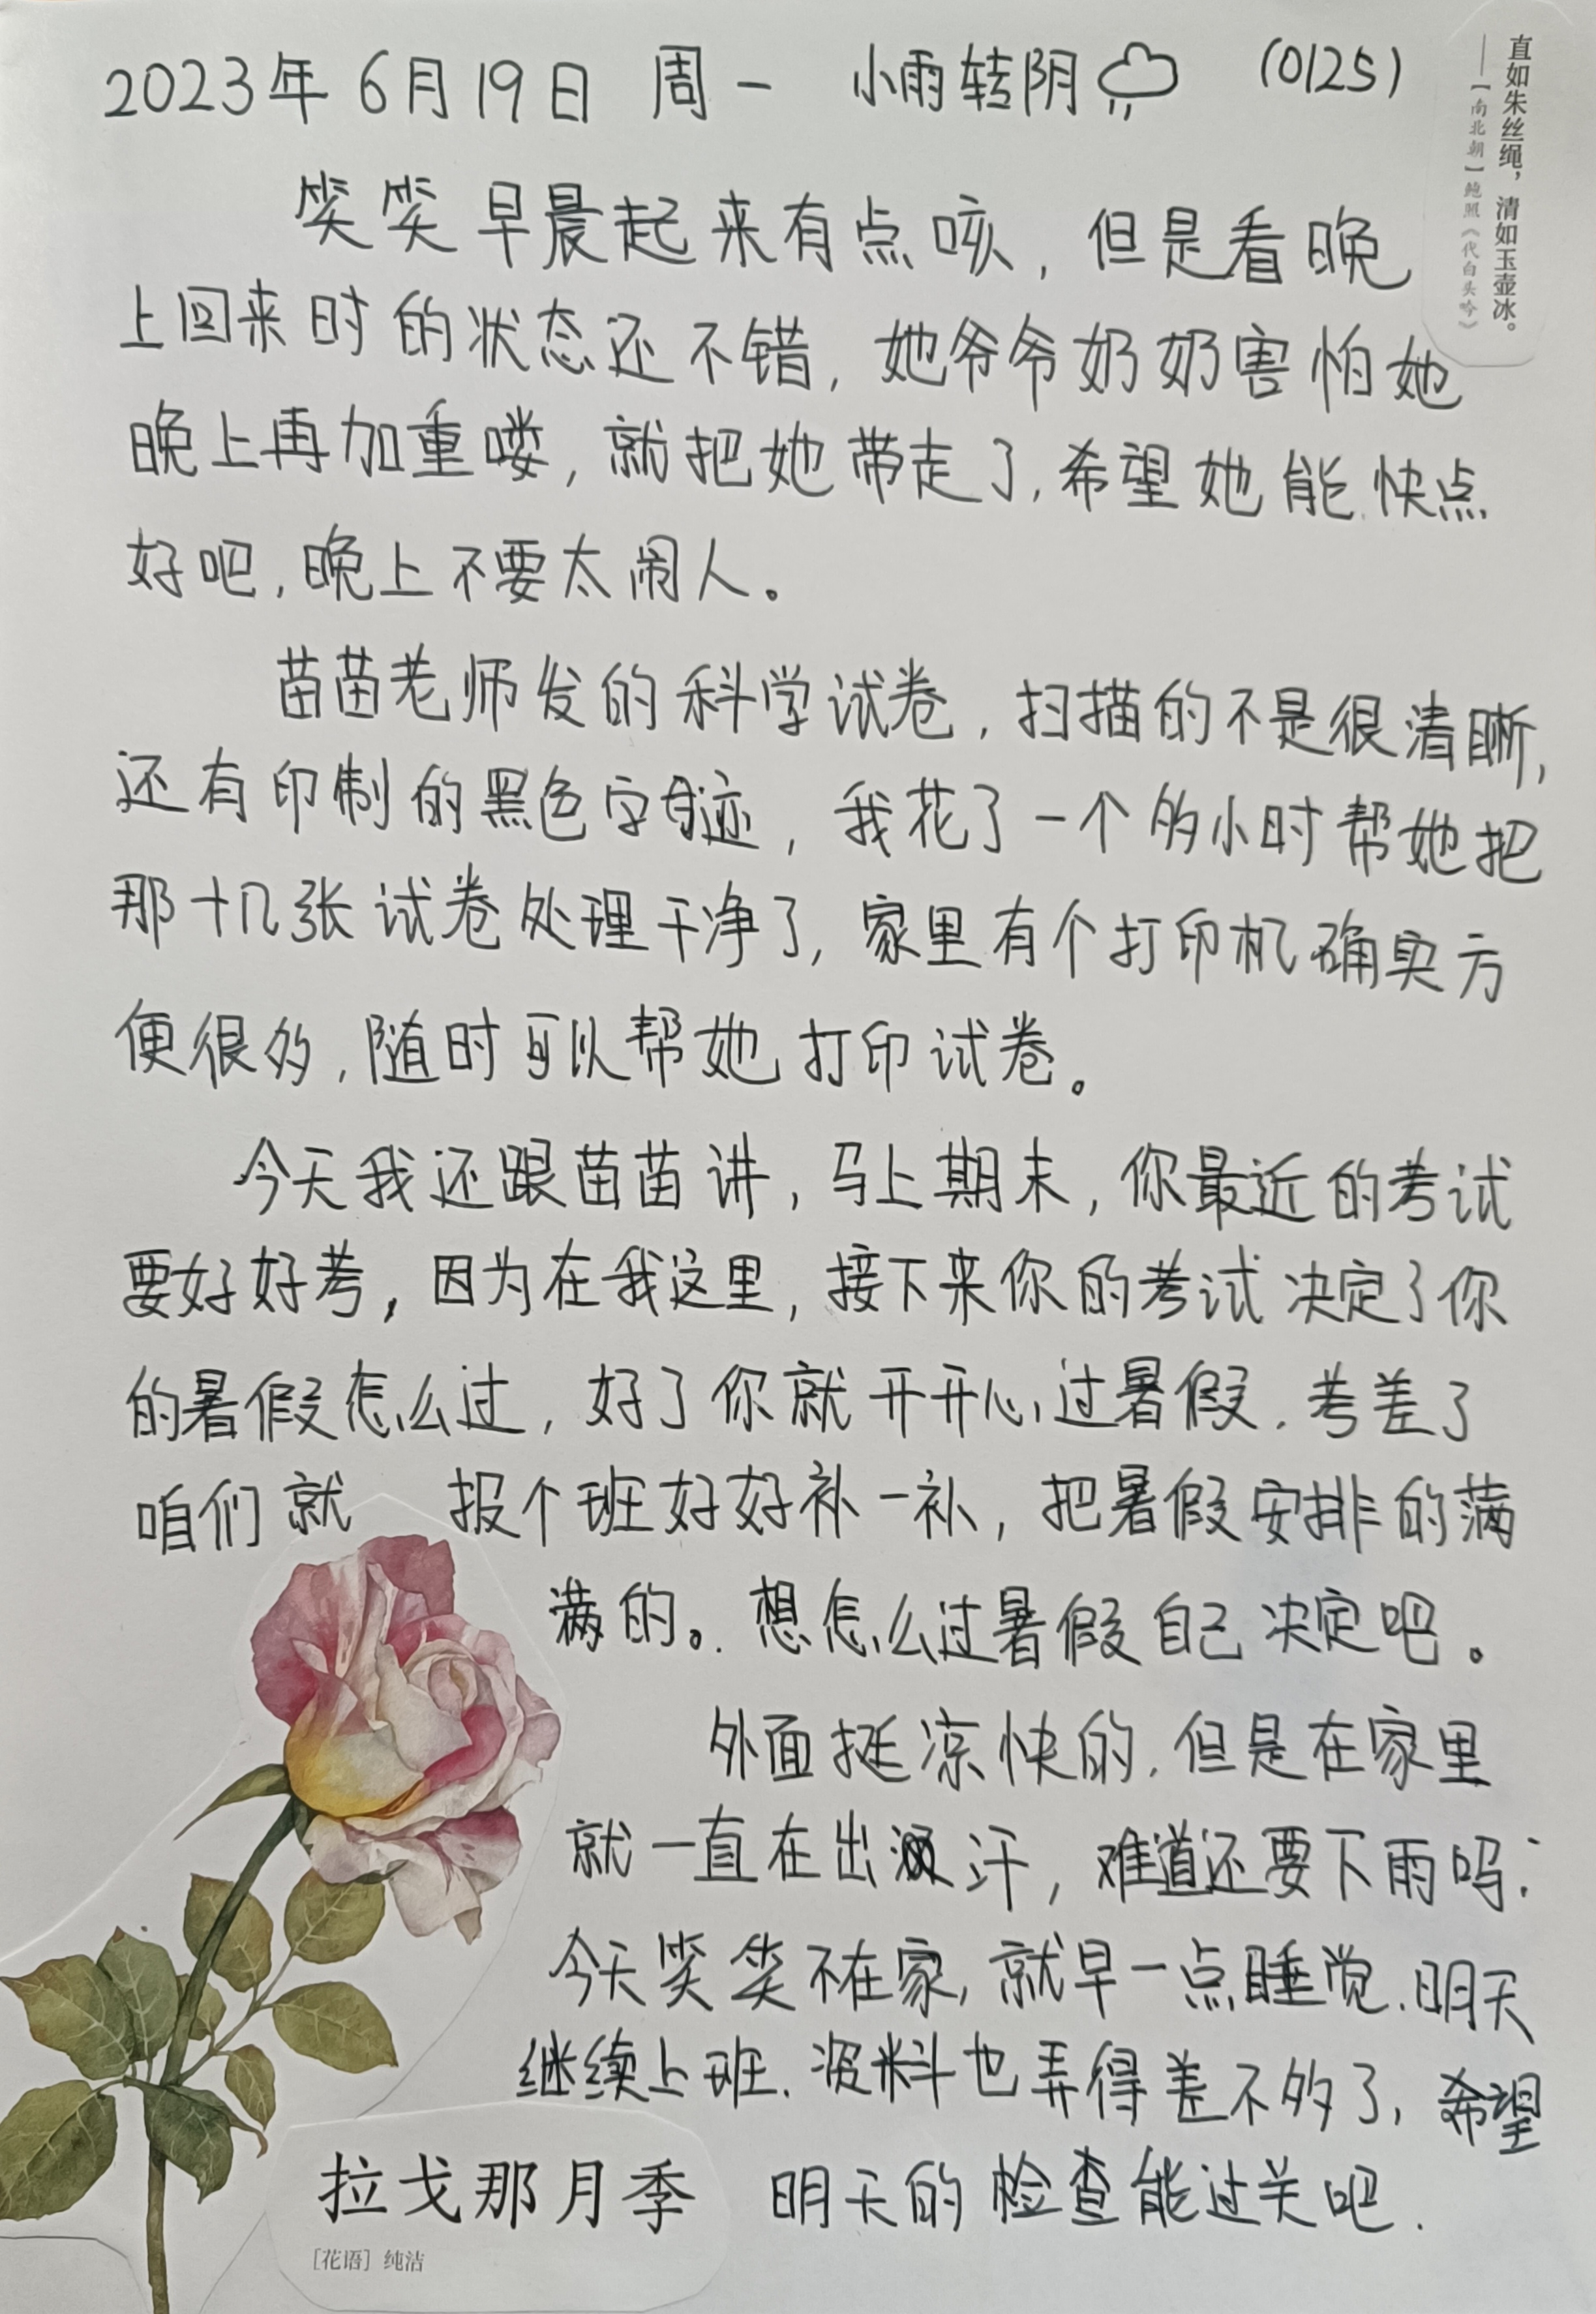 2023年6月19日 周一 小雨转阴 (0125)
直如朱丝绳，清如玉壶冰。
——【南北朝】鲍照《代白头吟》
笑笑早晨起来有点咳，但是看晚
上回来时的状态还不错，她爷爷奶奶害怕她
晚上再加重喽，就把她带走了，希望她能快点
好吧，晚上不要太闹人。
苗苗老师发的科学试卷，扫描的不是很清晰，
还有印制的黑色字迹，我花了一个多小时帮她把
那十几张试卷处理干净了，家里有个打印机确实方
便很多，随时可以帮她打印试卷。
今天我还跟苗苗讲，马上期末，你最近的考试
要好好考，因为在我这里，接下来你的考试决定了你
的暑假怎么过，好了你就开开心心过暑假，考差了
咱们就 报个班好好补一补，把暑假安排的满
满的。想怎么过暑假自己决定吧。
外面挺凉快的，但是在家里
就一直在出汗，难道还要下雨吗？
今天笑笑不在家，就早一点睡觉，明天
继续上班，资料也弄得差不多了，希望
明天的检查能过关吧.
拉戈那月季
[花语] 纯洁